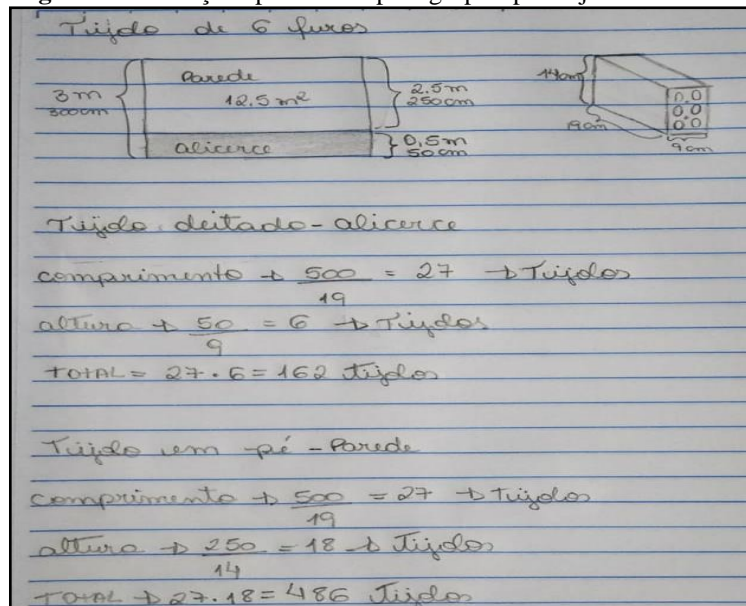 Tijolo de 6 furos
Parede
12.5 m²
alicerce
3m
300cm
2.5m
250cm
0,5m
50cm
14cm
19cm
9cm
Tijolo deitado - alicerce
comprimento → 500/19 = 27 → Tijolos
altura → 50/9 = 6 → Tijolos
TOTAL = 27 . 6 = 162 tijolos
Tijolo em pé - Parede
comprimento → 500/19 = 27 → Tijolos
altura → 250/14 = 18 → Tijolos
TOTAL → 27.18 = 486 Tijolos